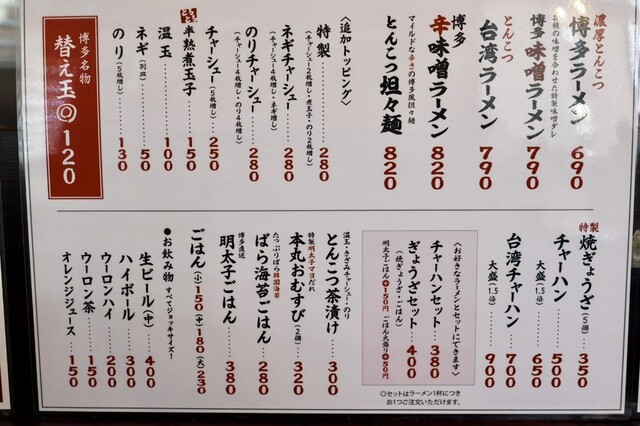 濃厚とんこつ
博多ラーメン 690
博多味噌ラーメン 790
種の味噌を合わせた特製味噌ダレ
とんこつ
台湾ラーメン 790
博多
辛味噌ラーメン 820
とんこつ坦々麺 820
マイルドな辛さの博多風担々麺
〈追加トッピング〉
特製 280
(チャーシュー2枚増し・煮玉子・のり2枚増し)
ネギチャーシュー 280
(チャーシュー4枚増し・ネギ増し)
のりチャーシュー 280
(チャーシュー4枚増し・のり4枚増し)
チャーシュー(5枚増し) 250
半熟煮玉子 150
温玉 100
ネギ(別皿) 50
のり(5枚増し) 130
博多名物
替え玉◎120
特製
焼ぎょうざ(5個) 350
チャーハン 500
大盛(1.5倍) 650
台湾チャーハン 700
大盛(1.5倍) 900
〈お好きなラーメンとセットにできます〉
チャーハンセット 380
ぎょうざセット 400
(焼ぎょうざ・ごはん)
明太子ごはん+150円 ごはん大盛り+50円
◎セットはラーメン1杯につき
お1つご注文いただけます。
温玉・きざみチャーシュー・のり
とんこつ茶漬け 300
特製明太子マヨだれ
本丸おむすび(2個) 320
たっぷりばら韓国海苔
ばら海苔ごはん 280
博多直送
明太子ごはん 380
ごはん(小)150(中)180(大)230
●お飲み物 すべてジョッキサイズ!
生ビール(中) 400
ハイボール 300
ウーロンハイ 200
ウーロン茶 150
オレンジジュース 150